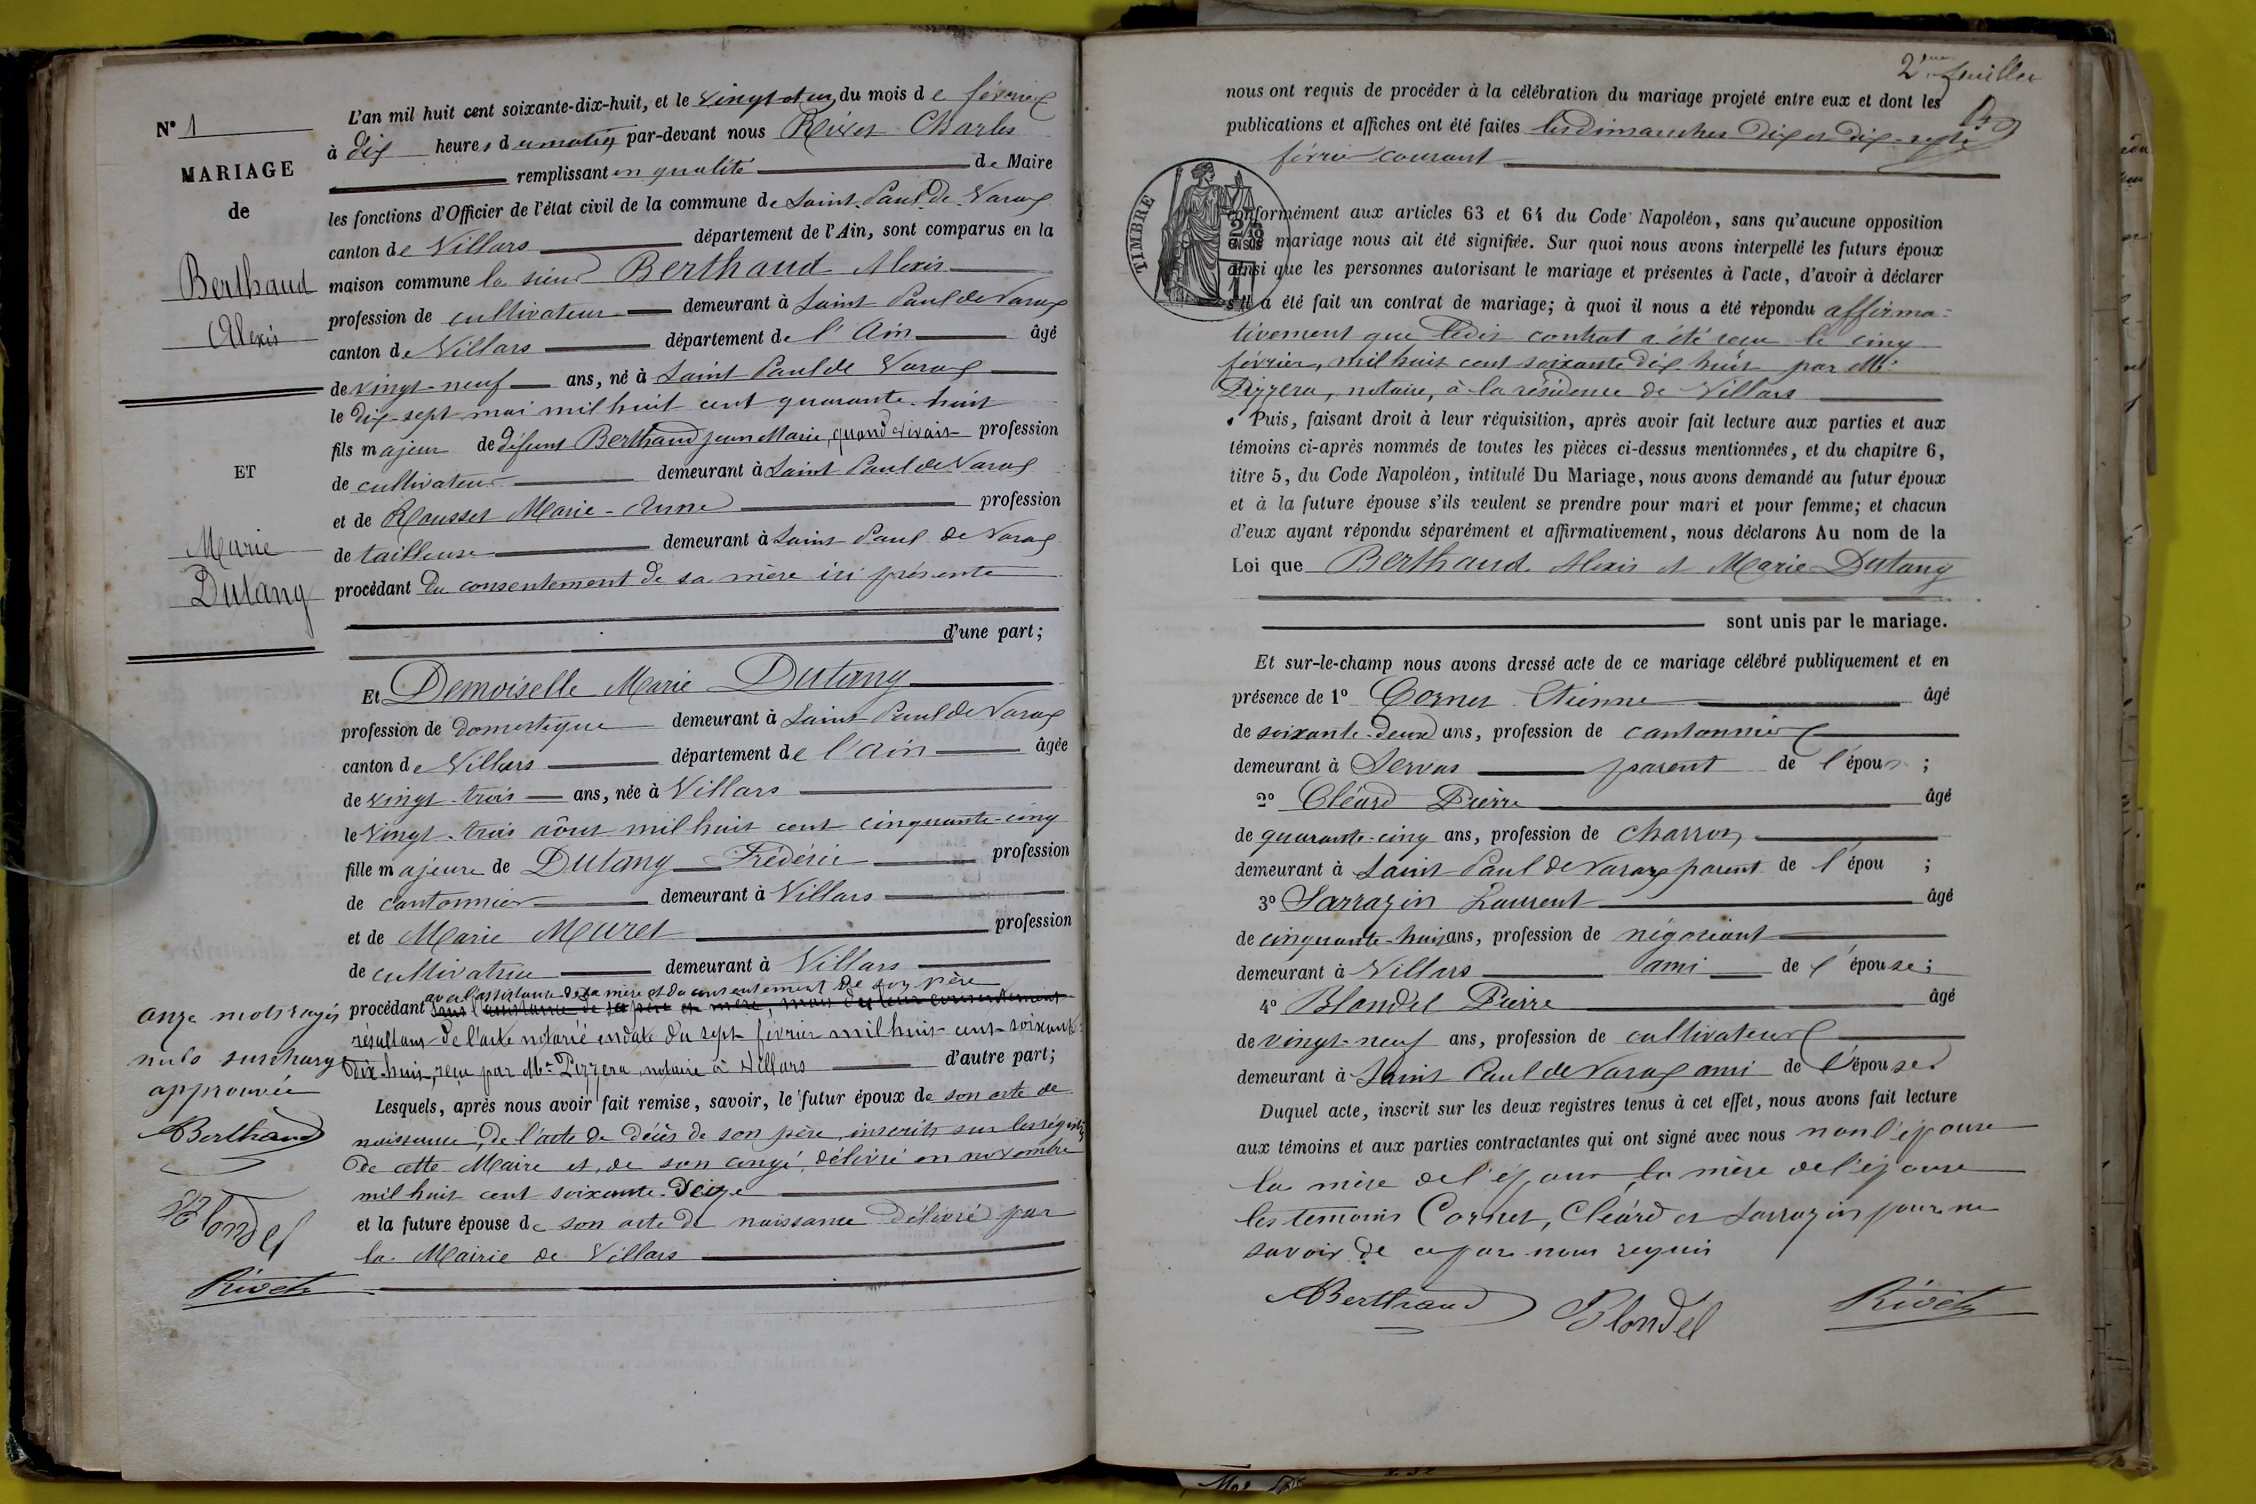 N° 1
MARIAGE
de
Berthaud
Alexis
ET
Marie
Dutang
L'an mil huit cent soixante-dix-huit, et le vingt et un du mois de février
à dix heures du matin par-devant nous Rivet Charles
remplissant en qualité de Maire
les fonctions d'Officier de l'état civil de la commune de Saint-Paul-de-Varax
canton de Villars département de l'Ain, sont comparus en la
maison commune le sieur Berthaud Alexis
profession de cultivateur demeurant à Saint Paul de Varax
canton de Villars département de l'Ain âgé
de vingt-neuf ans, né à Saint Paul de Varax
le dix-sept mai mil huit cent quarante-huit
fils majeur de défunt Berthaud Jean Marie, quand vivait profession
de cultivateur demeurant à Saint Paul de Varax
et de Rousset Marie-Anne profession
de tailleuse demeurant à Saint Paul de Varax
procédant du consentement de sa mère ici présente
d'une part;
Et Demoiselle Marie Dutang
profession de domestique demeurant à Saint Paul de Varax
canton de Villars département de l'Ain âgée
de vingt-trois ans, née à Villars
le vingt-trois août mil huit cent cinquante-cinq
fille majeure de Dutang Frédéric profession
de cantonnier demeurant à Villars
et de Marie Muret profession
de cultivatrice demeurant à Villars
avec l'assistance de sa mère et du consentement de son père
procédant sans l'assistance de ses père et mère, mais de leur consentement
résultant de l'acte notarié en date du sept février mil huit cent soixante
dix-huit, reçu par Me Pizzera notaire à Villars d'autre part;
onze mots rayés
nuls surcharge
approuvée
Berthaud
Blondel
Rivet
Lesquels, après nous avoir fait remise, savoir, le futur époux de son acte de
naissance, de l'acte de décès de son père, inscrits sur les registres
de cette Mairie et, de son congé, délivré en novembre
mil huit cent soixante-seize
et la future épouse de son acte de naissance délivré par
la Mairie de Villars
2eme feuillet
nous ont requis de procéder à la célébration du mariage projeté entre eux et dont les
publications et affiches ont été faites les dimanches dix et dix-sept
février courant
TIMBRE
conformément aux articles 63 et 64 du Code Napoléon, sans qu'aucune opposition
mariage nous ait été signifiée. Sur quoi nous avons interpellé les futurs époux
ainsi que les personnes autorisant le mariage et présentes à l'acte, d'avoir à déclarer
s'il a été fait un contrat de mariage; à quoi il nous a été répondu affirma-
tivement que ledit contrat a été reçu le cinq
février, mil huit cent soixante dix huit par Me
Pizzera, notaire, à la résidence de Villars
Puis, faisant droit à leur réquisition, après avoir fait lecture aux parties et aux
témoins ci-après nommés de toutes les pièces ci-dessus mentionnées, et du chapitre 6,
titre 5, du Code Napoléon, intitulé Du Mariage, nous avons demandé au futur époux
et à la future épouse s'ils veulent se prendre pour mari et pour femme; et chacun
d'eux ayant répondu séparément et affirmativement, nous déclarons Au nom de la
Loi que Berthaud Alexis et Marie Dutang
sont unis par le mariage.
Et sur-le-champ nous avons dressé acte de ce mariage célébré publiquement et en
présence de 1° Cornet Etienne âgé
de soixante-deux ans, profession de cantonnier
demeurant à Servas parent de l'époux ;
2° Cléard Pierre âgé
de quarante-cinq ans, profession de charron
demeurant à Saint Paul de Varax parent de l'épou ;
3° Sarrazin Laurent âgé
de cinquante-huit ans, profession de négociant
demeurant à Villars ami de l'épouse;
4° Blondel Pierre âgé
de vingt-neuf ans, profession de cultivateur
demeurant à Saint Paul de Varax ami de l'épouse
Duquel acte, inscrit sur les deux registres tenus à cet effet, nous avons fait lecture
aux témoins et aux parties contractantes qui ont signé avec nous non l'épouse
la mère de l'époux la mère de l'épouse
les temoins Cornet, Cléard et Sarrazin pour ne
savoir de ce par nous requis
Berthaud Blondel Rivet